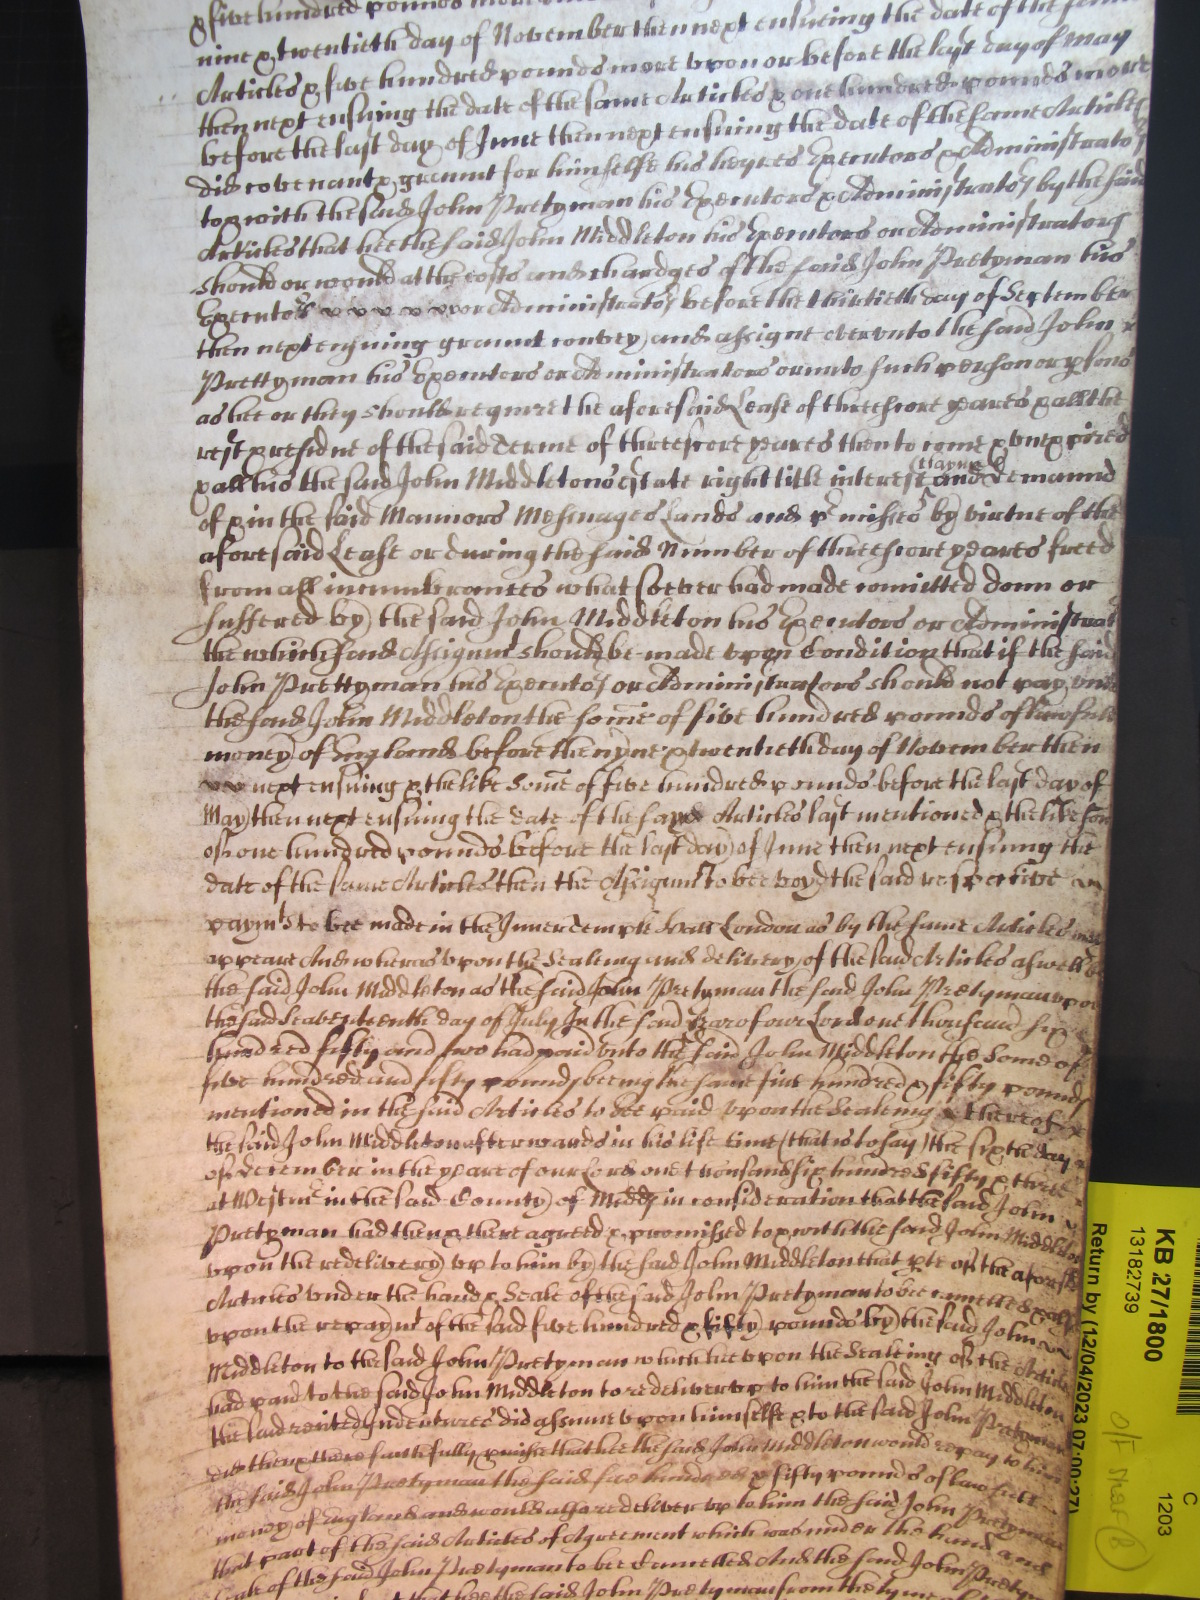 & five hundred pounds more
nine & twentieth day of November then next ensueing the date of the same
Articles & five hundred pounds more upon or before the last day of May
then next ensuing the date of the same Articles & one hundred pounds more
before the last day of June then next ensuing the date of the same Articles
did covenant & graunt for himselfe his heyres Executors & Administrators
to & with the said John Pretyman his Executors & Administrators by the said
Articles that hee the said John Middleton his Executors or Administrators
should or would at the costs and chardges of the said John Pretyman his
Executors or Administrators before the thirtieth day of September
then next ensuing graunt convey and assigne over unto the said John
Prettyman his Executors or Administrators or unto such person or psons
as hee or they should require the aforesaid Lease of threescore yeares & all the
rest & residue of the said Terme of threescore yeares then to come & unexpired
& all his the said John Middletons estate right title interest clayme and demaund
of & in the said Mannors Messuages Lands and pmisses by virtue of the
aforesaid Lease or during the said Number of threescore yeares freed
from all incumbrances what soever had made comitted donn or
suffered by the said John Middleton his Executors or Administrat
the which said Assignmt should be made upon Condition that if the said
John Prettyman his Executors or Administrators should not pay unto
the said John Middleton the some of five hundred pounds of lawfull
money of England before the nyne & twentieth day of November then
next ensuing & the like Some of five hundred pounds before the last day of
May then next ensuing the date of the sayd Articles last mentioned & the like som
of one hundred pounds before the last day of June then next ensuing the
date of the same Articles then the Assignmt to bee voyd the said respective
paymts to bee made in the Inner Temple Hall London as by the same Articles
appeare And wheras upon the Sealeing and delivery of the said Articles aswell by
the said John Middleton as the said John Pretyman the said John Pretyman upon
the said seaventeenth day of July In the said yeare of our Lord one thousand six
hundred fifty and two had paid unto the said John Middleton the Some of
five hundred and fifty pounds being the same five hundred & fifty pounds
mentioned in the said Articles to bee paid upon the Sealeing thereof
the said John Middleton afterwards in his life time (that is to say) the sixth day
of December in the yeare of our Lord one thousand six hundred fifty & three
at Westmr in the said County of Midds in consideration that the said John
Pretyman had then & there agreed & promissed to & with the said John Middleton
upon the redelivery up to him by the said John Middleton that pte of the aforesd
Articles under the hand & Seale of the said John Pretyman to bee cancelled
upon the repaymt of the said five hundred & fifty pounds by the said John
Middleton to the said John Pretyman which hee upon the Sealeing of the Articles
had paid to the said John Middleton to redeliver up to him the said John Middleton
the said recited Indentures did assume upon himselfe & to the said John Pretyman
did then & there faithfully pmise that hee the said John Middleton would repay to him
the said John Pretyman the said five hundred & fifty pounds of lawfull
money of England and would also redeliver up to him the said John Pretyman
that part of the said Articles of Agreement which was under the hand and
Seale of the said John Pretyman to bee Cancelled And the said John Pretyman
that hee the said John Pretyman from the tyme
KB 27/1800
13182739
Return by (12/04/2023 07:00:27)
C
1203